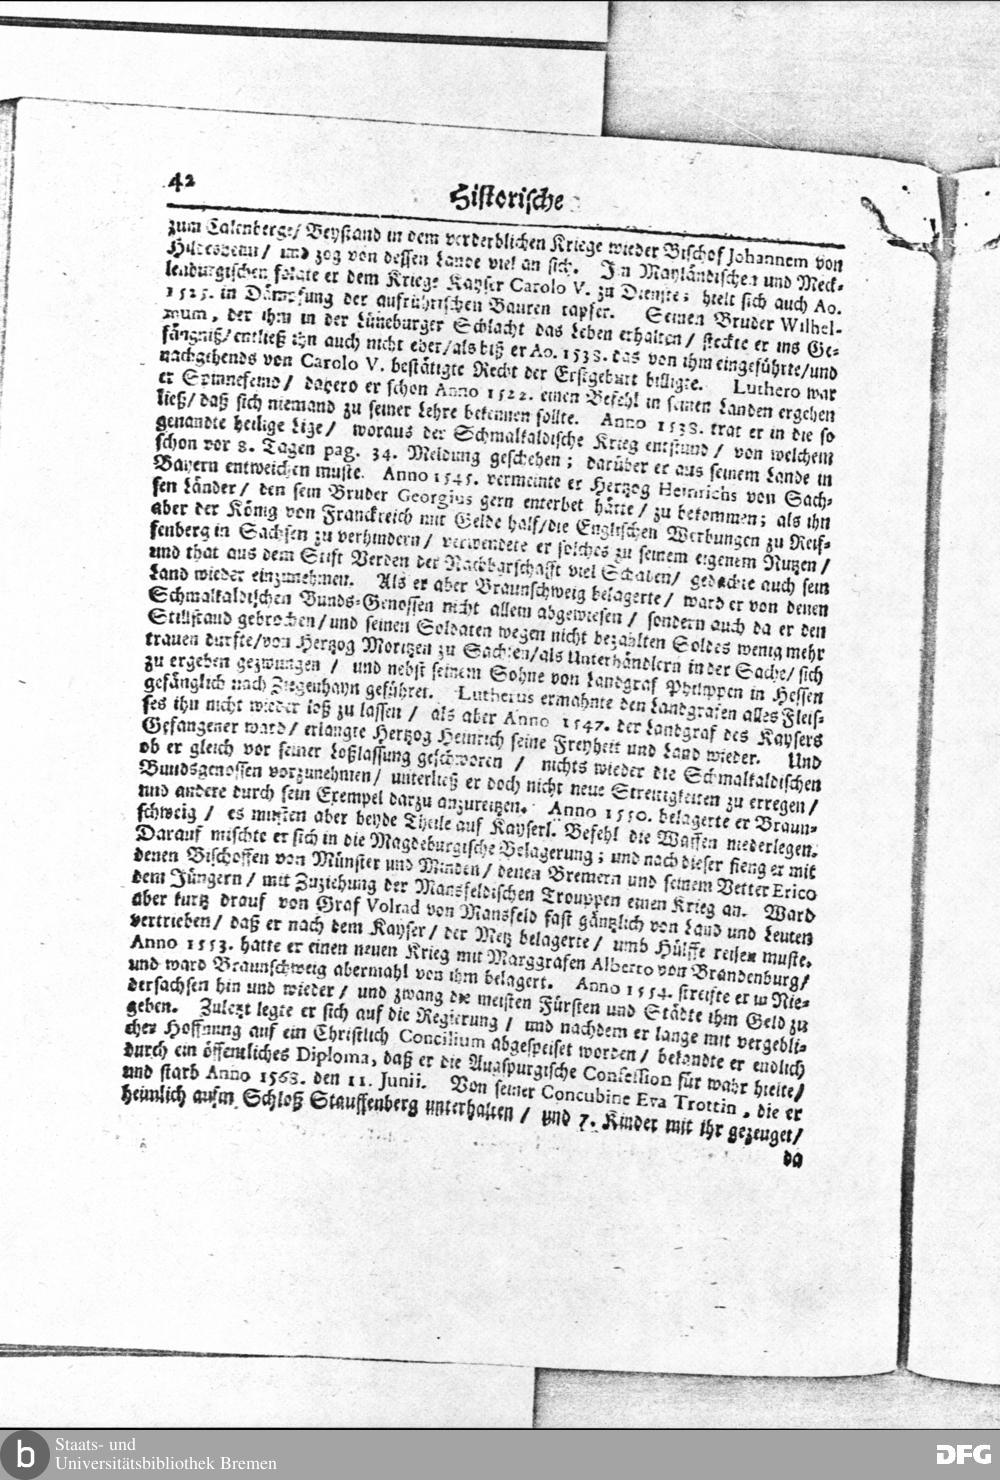 42
Historische
zum Calenberge/ Beystand in dem verderblichen Kriege wieder Bischof Johannem von
Hildesheim/ und zog von dessen Lande viel an sich. Im Mayländischen und Meck-
lenburgischen folgte er dem Kriege Kayser Carolo V. zu Dienste; hielt sich auch Ao.
1525. in Dämpfung der aufrührischen Bauren tapfer. Seinen Bruder Wilhel-
mum, der ihm in der Lüneburger Schlacht das Leben erhalten/ steckte er ins Ge-
fängniß/ entließ ihn auch nicht eher/ als biß er Ao. 1538. das von ihm eingeführte/ und
nachgehends von Carolo V. bestätigte Recht der Erstgeburt billigte. Luthero war
er Spinnefeind/ dahero er schon Anno 1522. einen Befehl in seinen Landen ergehen
ließ/ daß sich niemand zu seiner Lehre bekennen sollte. Anno 1538. trat er in die so
genandte heilige Lige/ woraus der Schmalkaldische Krieg entstund/ von welchem
schon vor 8. Tagen pag. 34. Meldung geschehen; darüber er aus seinem Lande in
Bayern entweichen muste. Anno 1545. vermeinte er Hertzog Heinrichs von Sach-
sen Länder/ den sein Bruder Georgius gern enterbet hätte/ zu bekommen; als ihn
aber der König von Franckreich mit Gelde half/ die Englischen Werbungen zu Reif-
fenberg in Sachsen zu verhindern/ verwendete er solches zu seinem eigenem Nutzen/
und that aus dem Stift Verden der Nachbarschafft viel Schaden/ gedachte auch sein
Land wieder einzunehmen. Als er aber Braunschweig belagerte/ ward er von denen
Schmalkaldischen Bunds-Genossen nicht allein abgewiesen/ sondern auch da er den
Stillstand gebrochen/ und seinen Soldaten wegen nicht bezahlten Soldes wenig mehr
trauen durfte/ von Hertzog Moritzen zu Sachsen/ als Unterhändlern in der Sache/ sich
zu ergeben gezwungen/ und nebst seinem Sohne von Landgraf Philippen in Hessen
gefänglich nach Ziegenhayn geführet. Lutherus ermahnte den Landgrafen alles Fleis-
ses ihn nicht wieder loß zu lassen/ als aber Anno 1547. der Landgraf des Kaysers
Gefangener ward/ erlangte Hertzog Heinrich seine Freyheit und Land wieder. Und
ob er gleich vor seiner Loßlassung geschworen/ nichts wieder die Schmalkaldischen
Bundsgenossen vorzunehmen/ unterließ er doch nicht neue Streitigkeiten zu erregen/
und andere durch sein Exempel darzu anzureitzen. Anno 1550. belagerte er Braun-
schweig/ es musten aber beyde Theile auf Kayserl. Befehl die Waffen niederlegen.
Darauf mischte er sich in die Magdeburgische Belagerung; und nach dieser fieng er mit
denen Bischoffen von Münster und Minden/ denen Bremern und seinem Vetter Erico
dem Jüngern/ mit Zuziehung der Mansfeldischen Trouppen einen Krieg an. Ward
aber kurtz drauf von Graf Volrad von Mansfeld fast gäntzlich von Land und Leuten
vertrieben/ daß er nach dem Kayser/ der Metz belagerte/ umb Hülffe reisen muste.
Anno 1553. hatte er einen neuen Krieg mit Marggrafen Alberto von Brandenburg/
und ward Braunschweig abermahl von ihm belagert. Anno 1554. streifte er in Nie-
dersachsen hin und wieder/ und zwang die meisten Fürsten und Städte ihm Geld zu
geben. Zuletzt legte er sich auf die Regierung/ und nachdem er lange mit vergebli-
cher Hoffnung auf ein Christlich Concilium abgespeiset worden/ bekandte er endlich
durch ein öffentliches Diploma, daß er die Augspurgische Confession für wahr hielte/
und starb Anno 1568. den 11. Junii. Von seiner Concubine Eva Trottin, die er
heimlich aufm Schloß Stauffenberg unterhalten/ und 7. Kinder mit ihr gezeuget/
da
b
Staats- und
Universitätsbibliothek Bremen
DFG